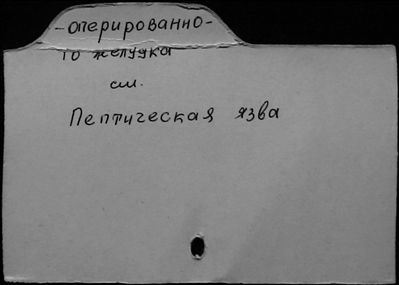 -оперированно-
го желудка
см.
Пептическая язва